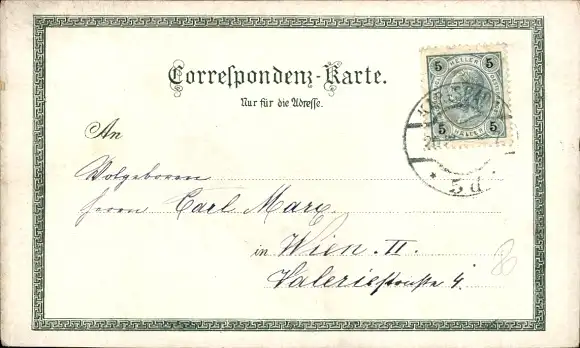 Correspondenz-Karte.
Nur für die Adresse.
5 HELLER 5
5 HELLER 5
5 d
An
Wolgeboren
Herrn Carl Marx
in Wien. II.
Valeriestraße 4.